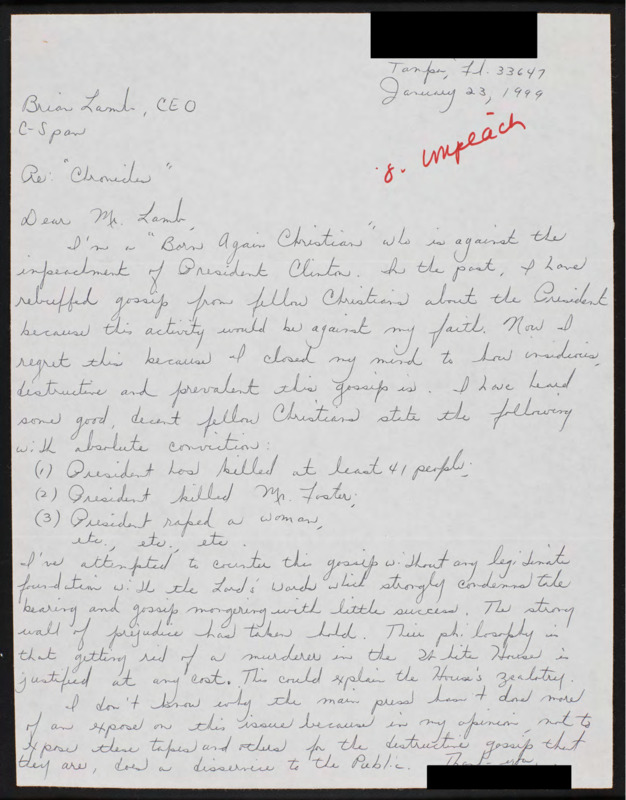 Tampa, Fl. 33647
January 23, 1999
Brian Lamb, CEO
C-Span
Re: "Chronicles"
g. impeach
Dear Mr. Lamb,
I'm a "Born Again Christian" who is against the
impeachment of President Clinton. In the past, I have
rebuffed gossip from fellow Christians about the President
because this activity would be against my faith. Now I
regret this because I closed my mind to how insidious,
destructive and prevalent this gossip is. I have heard
some good, decent fellow Christians state the following
with absolute conviction:
(1) President has killed at least 41 people;
(2) President killed Mr. Foster;
(3) President raped a woman,
etc., etc., etc.
I've attempted to counter this gossip without any legitimate
foundation with the Lord's words which strongly condemns tale
bearing and gossip mongering with little success. The strong
wall of prejudice has taken hold. Their philosophy is
that getting rid of a murderer in the White House is
justified at any cost. This could explain the House's zealotry.
I don't know why the main press hasn't done more
of an expose on this issue because in my opinion, not to
expose these tapes and others for the destructive gossip that
they are, does a disservice to the Public. Thank you,